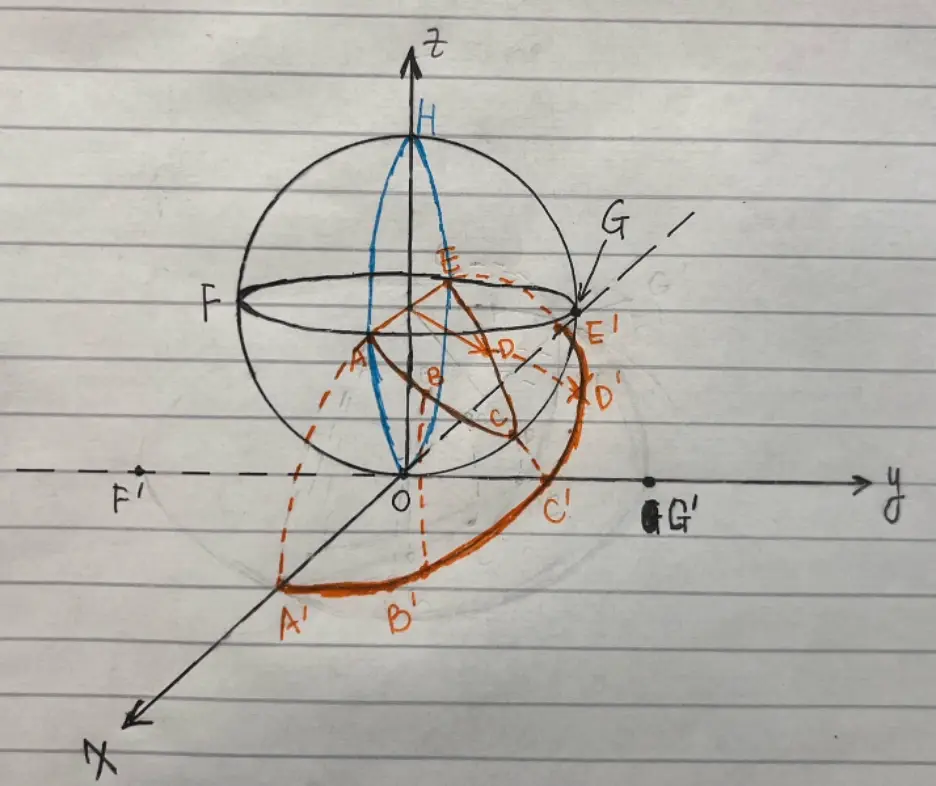 z
H
G
E
F
E'
A
D
B
D'
C
F'
O
C'
G'
y
A'
B'
X